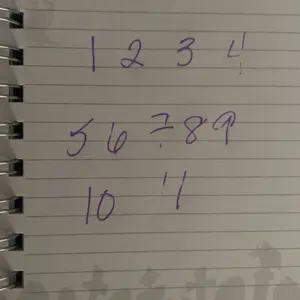 1 2 3 4
5 6 7 8 9
10